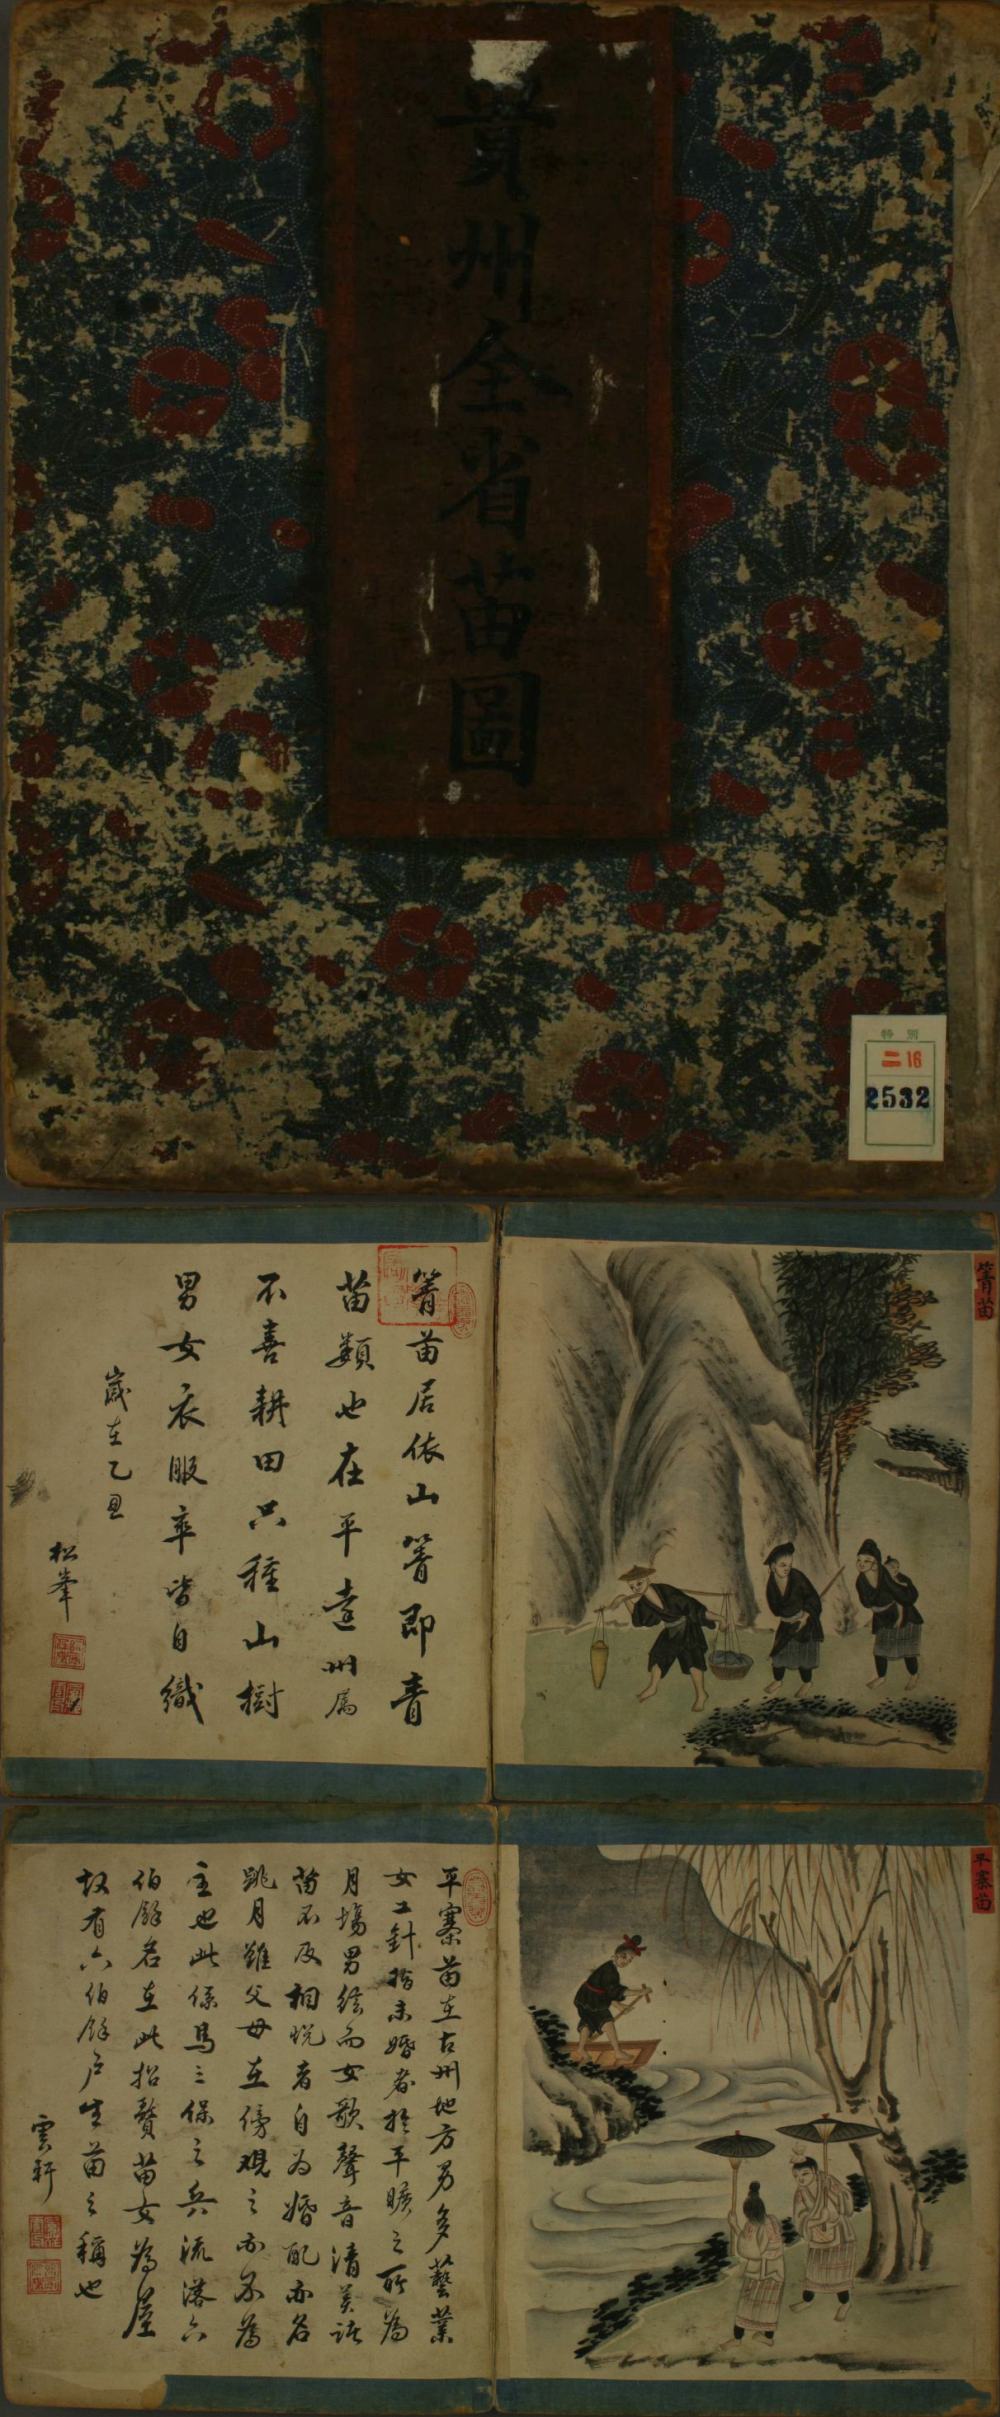 貴州全省苗圖
特別
二 16
2532
箐苗
箐苗居依山箐即青
苗類也在平遠州屬
不喜耕田只種山樹
男女衣服率皆自織
歲在乙丑
松峯
平寨苗
平寨苗在古州地方男多藝業
女工針指未婚者於平曠之所為
月塲男絃而女歌聲音清美諸
苗不及相悅者自为婚配亦名
跳月雖父母在傍觀之亦不為
主也此係馬三保之兵流落六
伯餘名在此招贅苗女為室
故有六伯餘户生苗之稱也
雲軒